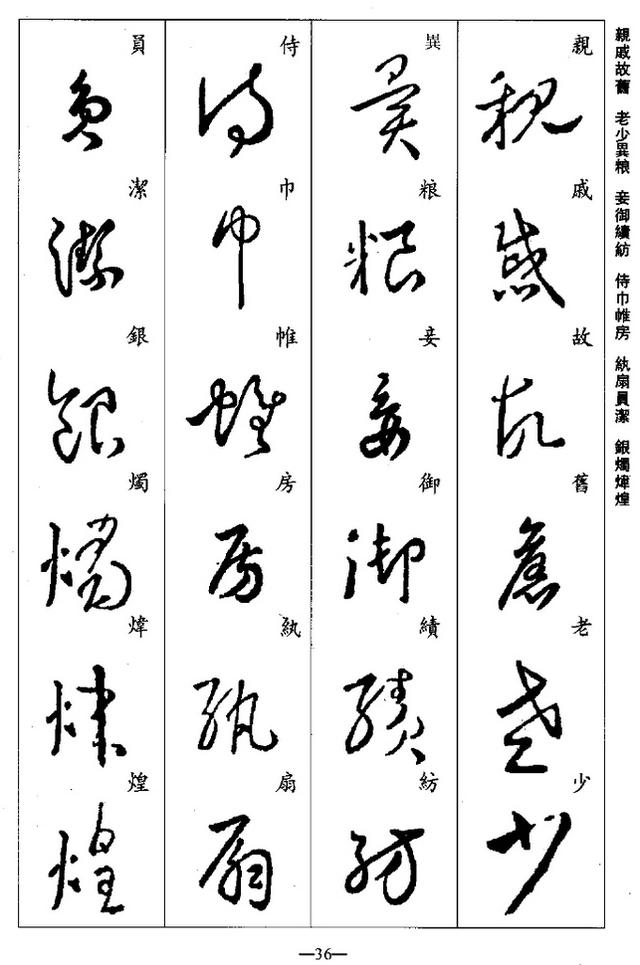 親戚故舊 老少異粮 妾御績紡 侍巾帷房 紈扇員潔 銀燭煒煌
親戚故舊老少
異粮妾御績紡
侍巾帷房紈扇
員潔銀燭煒煌
—36—